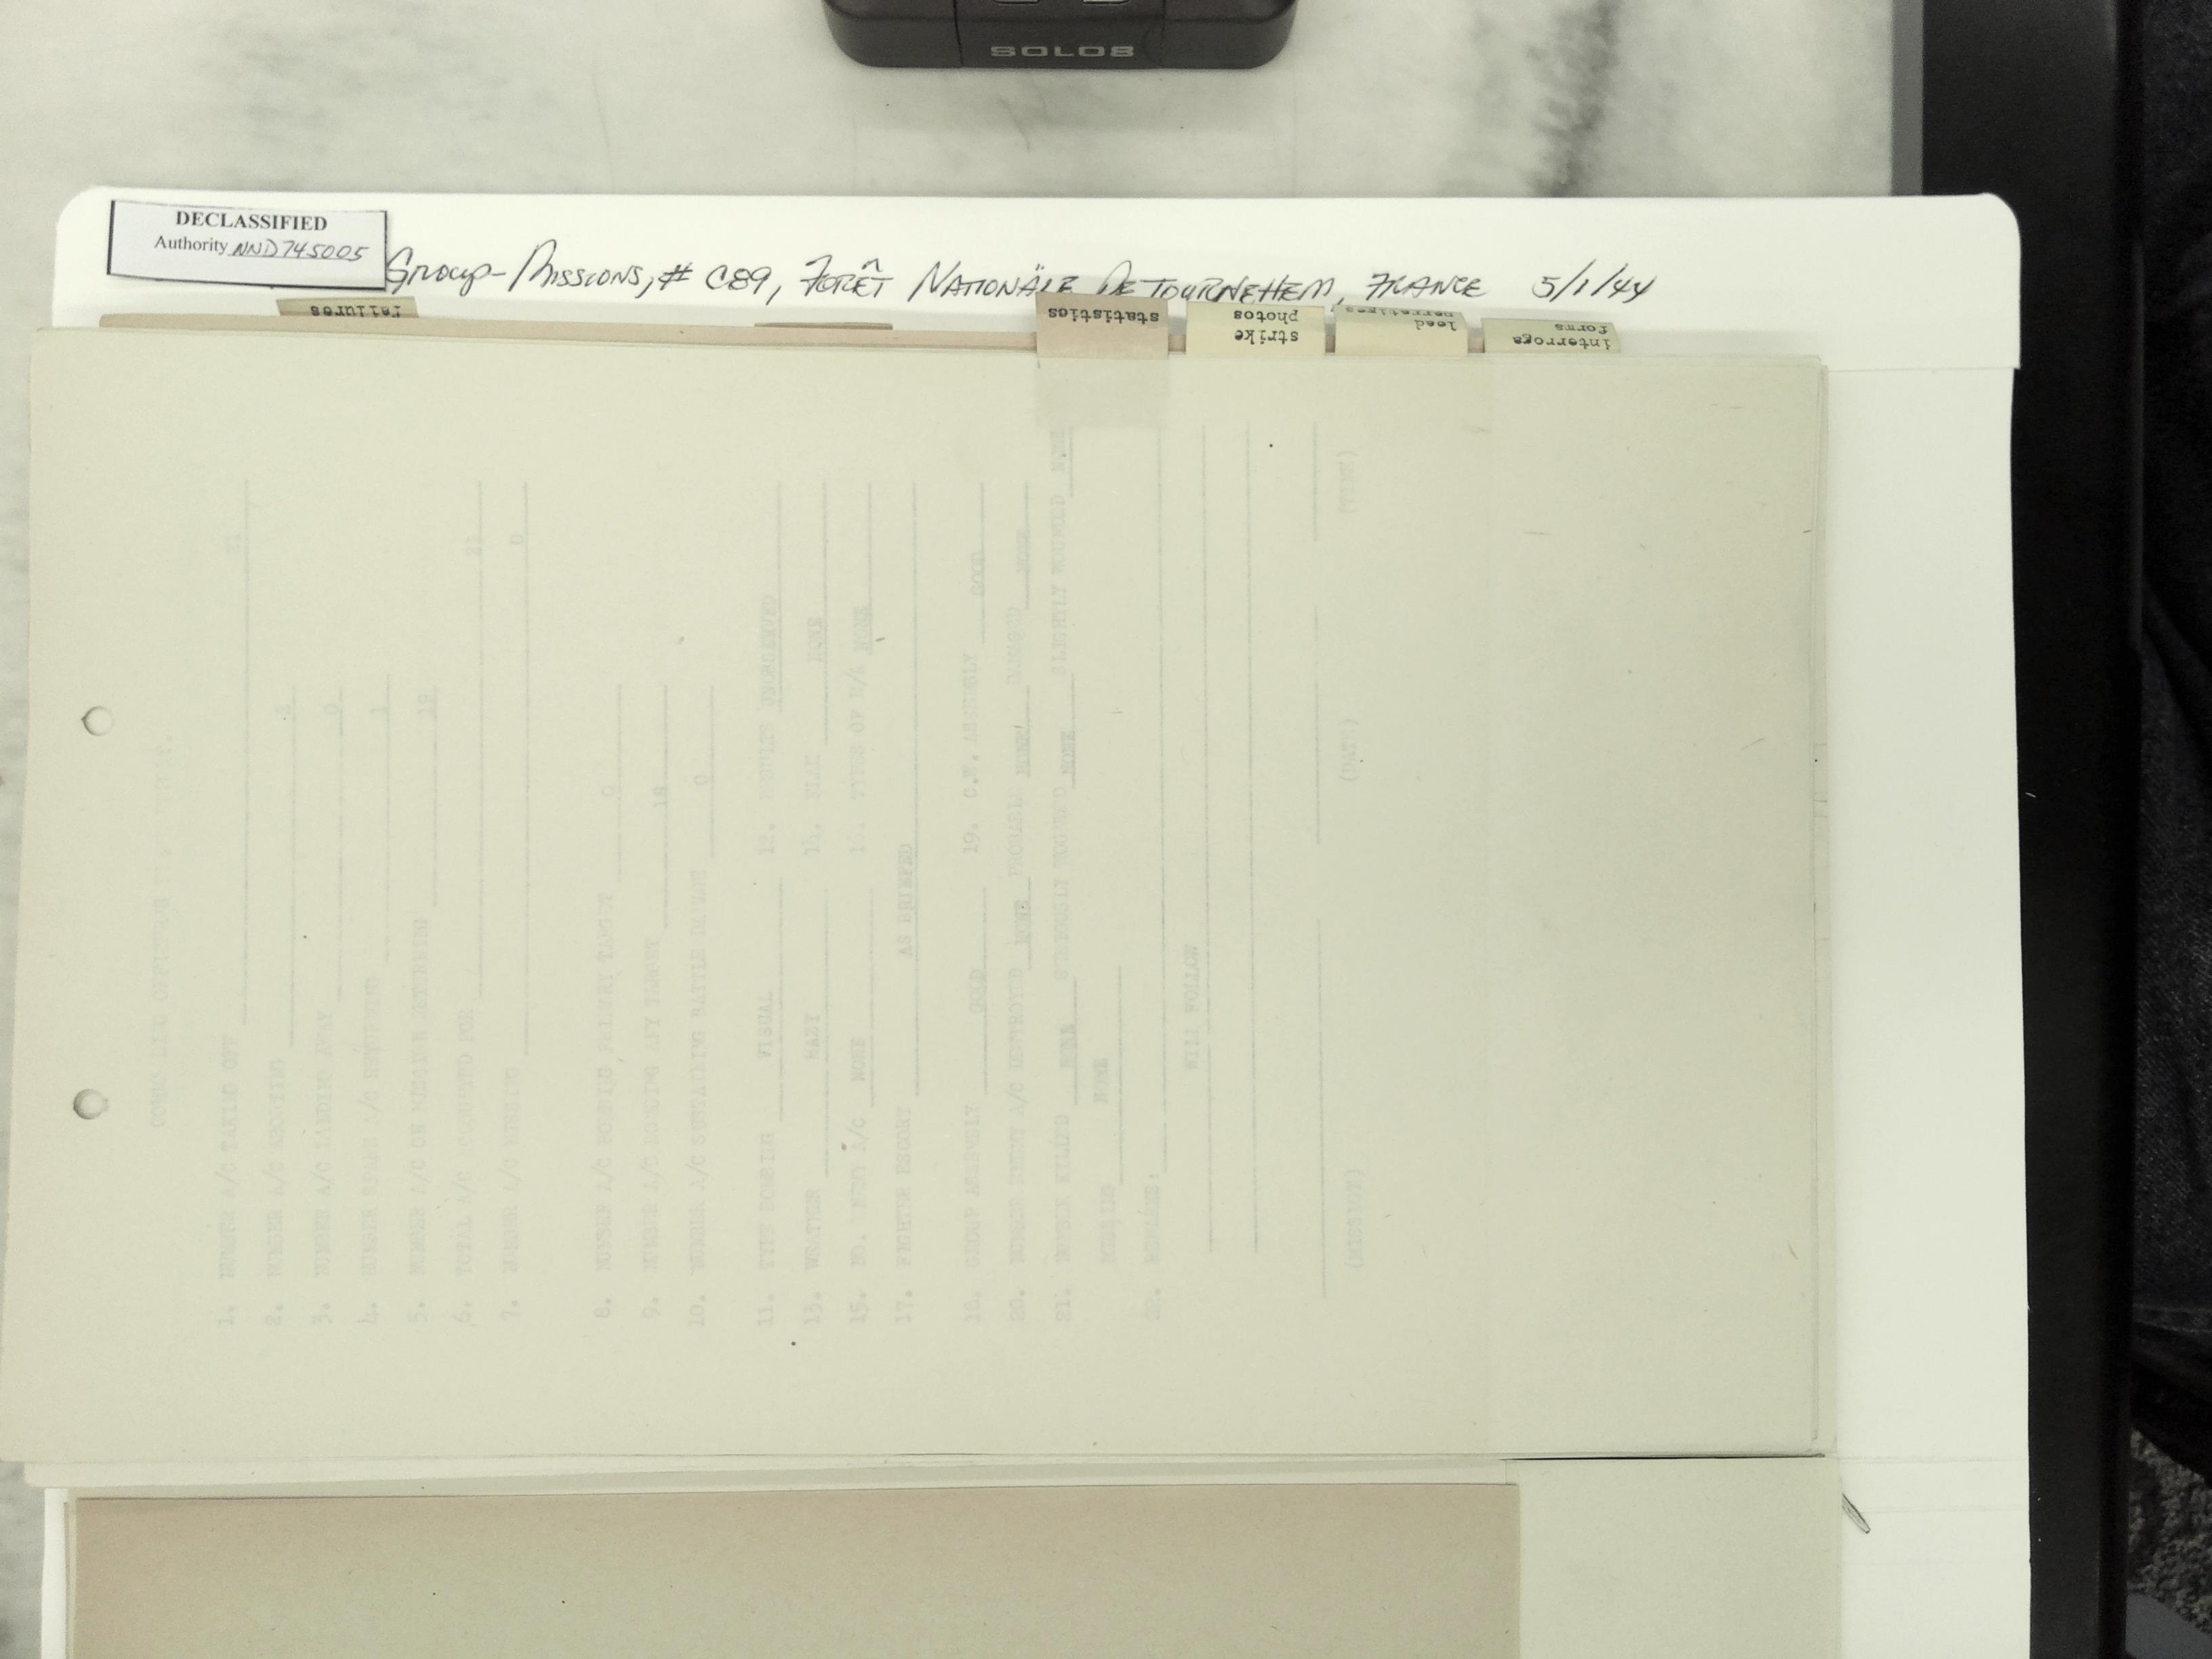 SOLO8
DECLASSIFIED
Authority NND745005
Group-Missions, # C89, Forêt Nationäle De Tournehem, France 5/1/44
failures
statistics
strike
photos
lead
narratives
interroga
forms
1. NUMBER A/C TAKING OFF
2. NUMBER A/C ABORTING
3. NUMBER A/C LANDING AWAY 0
4. NUMBER SPARE A/C RETURNING 1
5. NUMBER A/C ON MISSION RETURNING
6. TOTAL A/C ACCOUNTED FOR 21
7. NUMBER A/C MISSING 0
8. NUMBER A/C BOMBING PRIMARY TARGET 0
9. NUMBER A/C BOMBING ANY TARGET 18
10. NUMBER A/C SUSTAINING BATTLE DAMAGE 0
11. TYPE BOMBING VISUAL 12. RESULTS UNOBSERVED
13. WEATHER HAZY 14. FLAK NONE
15. NO. ENEMY A/C NONE 16. TYPES OF E/A NONE
17. FIGHTER ESCORT AS BRIEFED
18. GROUP ASSEMBLY GOOD 19. C.W. ASSEMBLY GOOD
20. NUMBER ENEMY A/C DESTROYED NONE PROBABLE NONE DAMAGED NONE
21. PEOPLE KILLED NONE SERIOUSLY WOUNDED NONE SLIGHTLY WOUNDED NONE
MISSING NONE
22. REMARKS:
WILL FOLLOW
(MISSION) (DATE) (TIME)